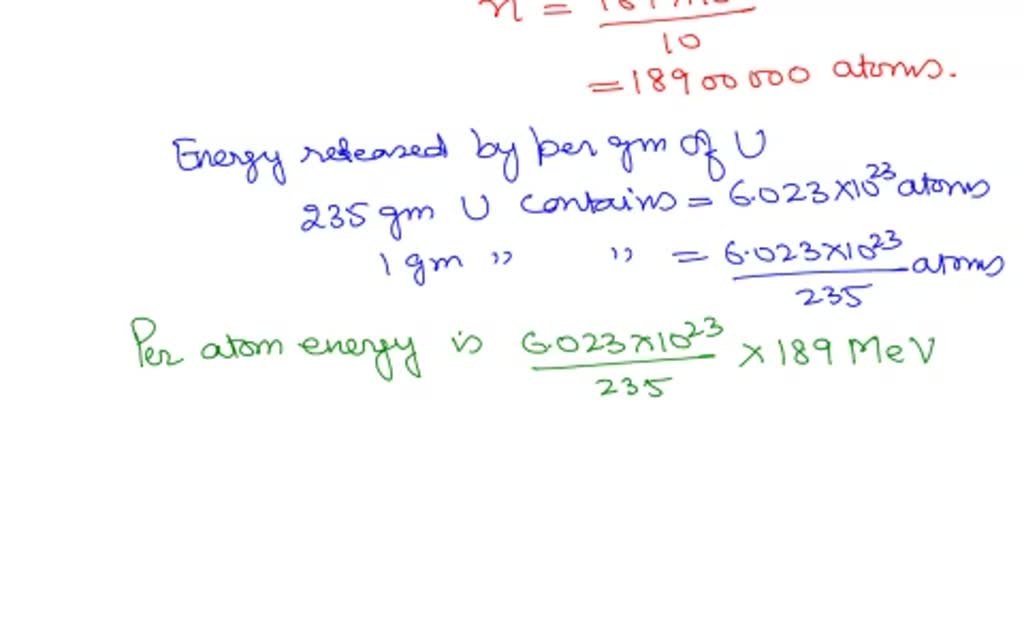 n =
10
= 18900000 atoms.
Energy released by per gm of U
235 gm U contains = 6.023×10²³ atoms
1 gm " " = 6.023×10²³ / 235 atoms
Per atom energy is 6.023×10²³ / 235 × 189 MeV